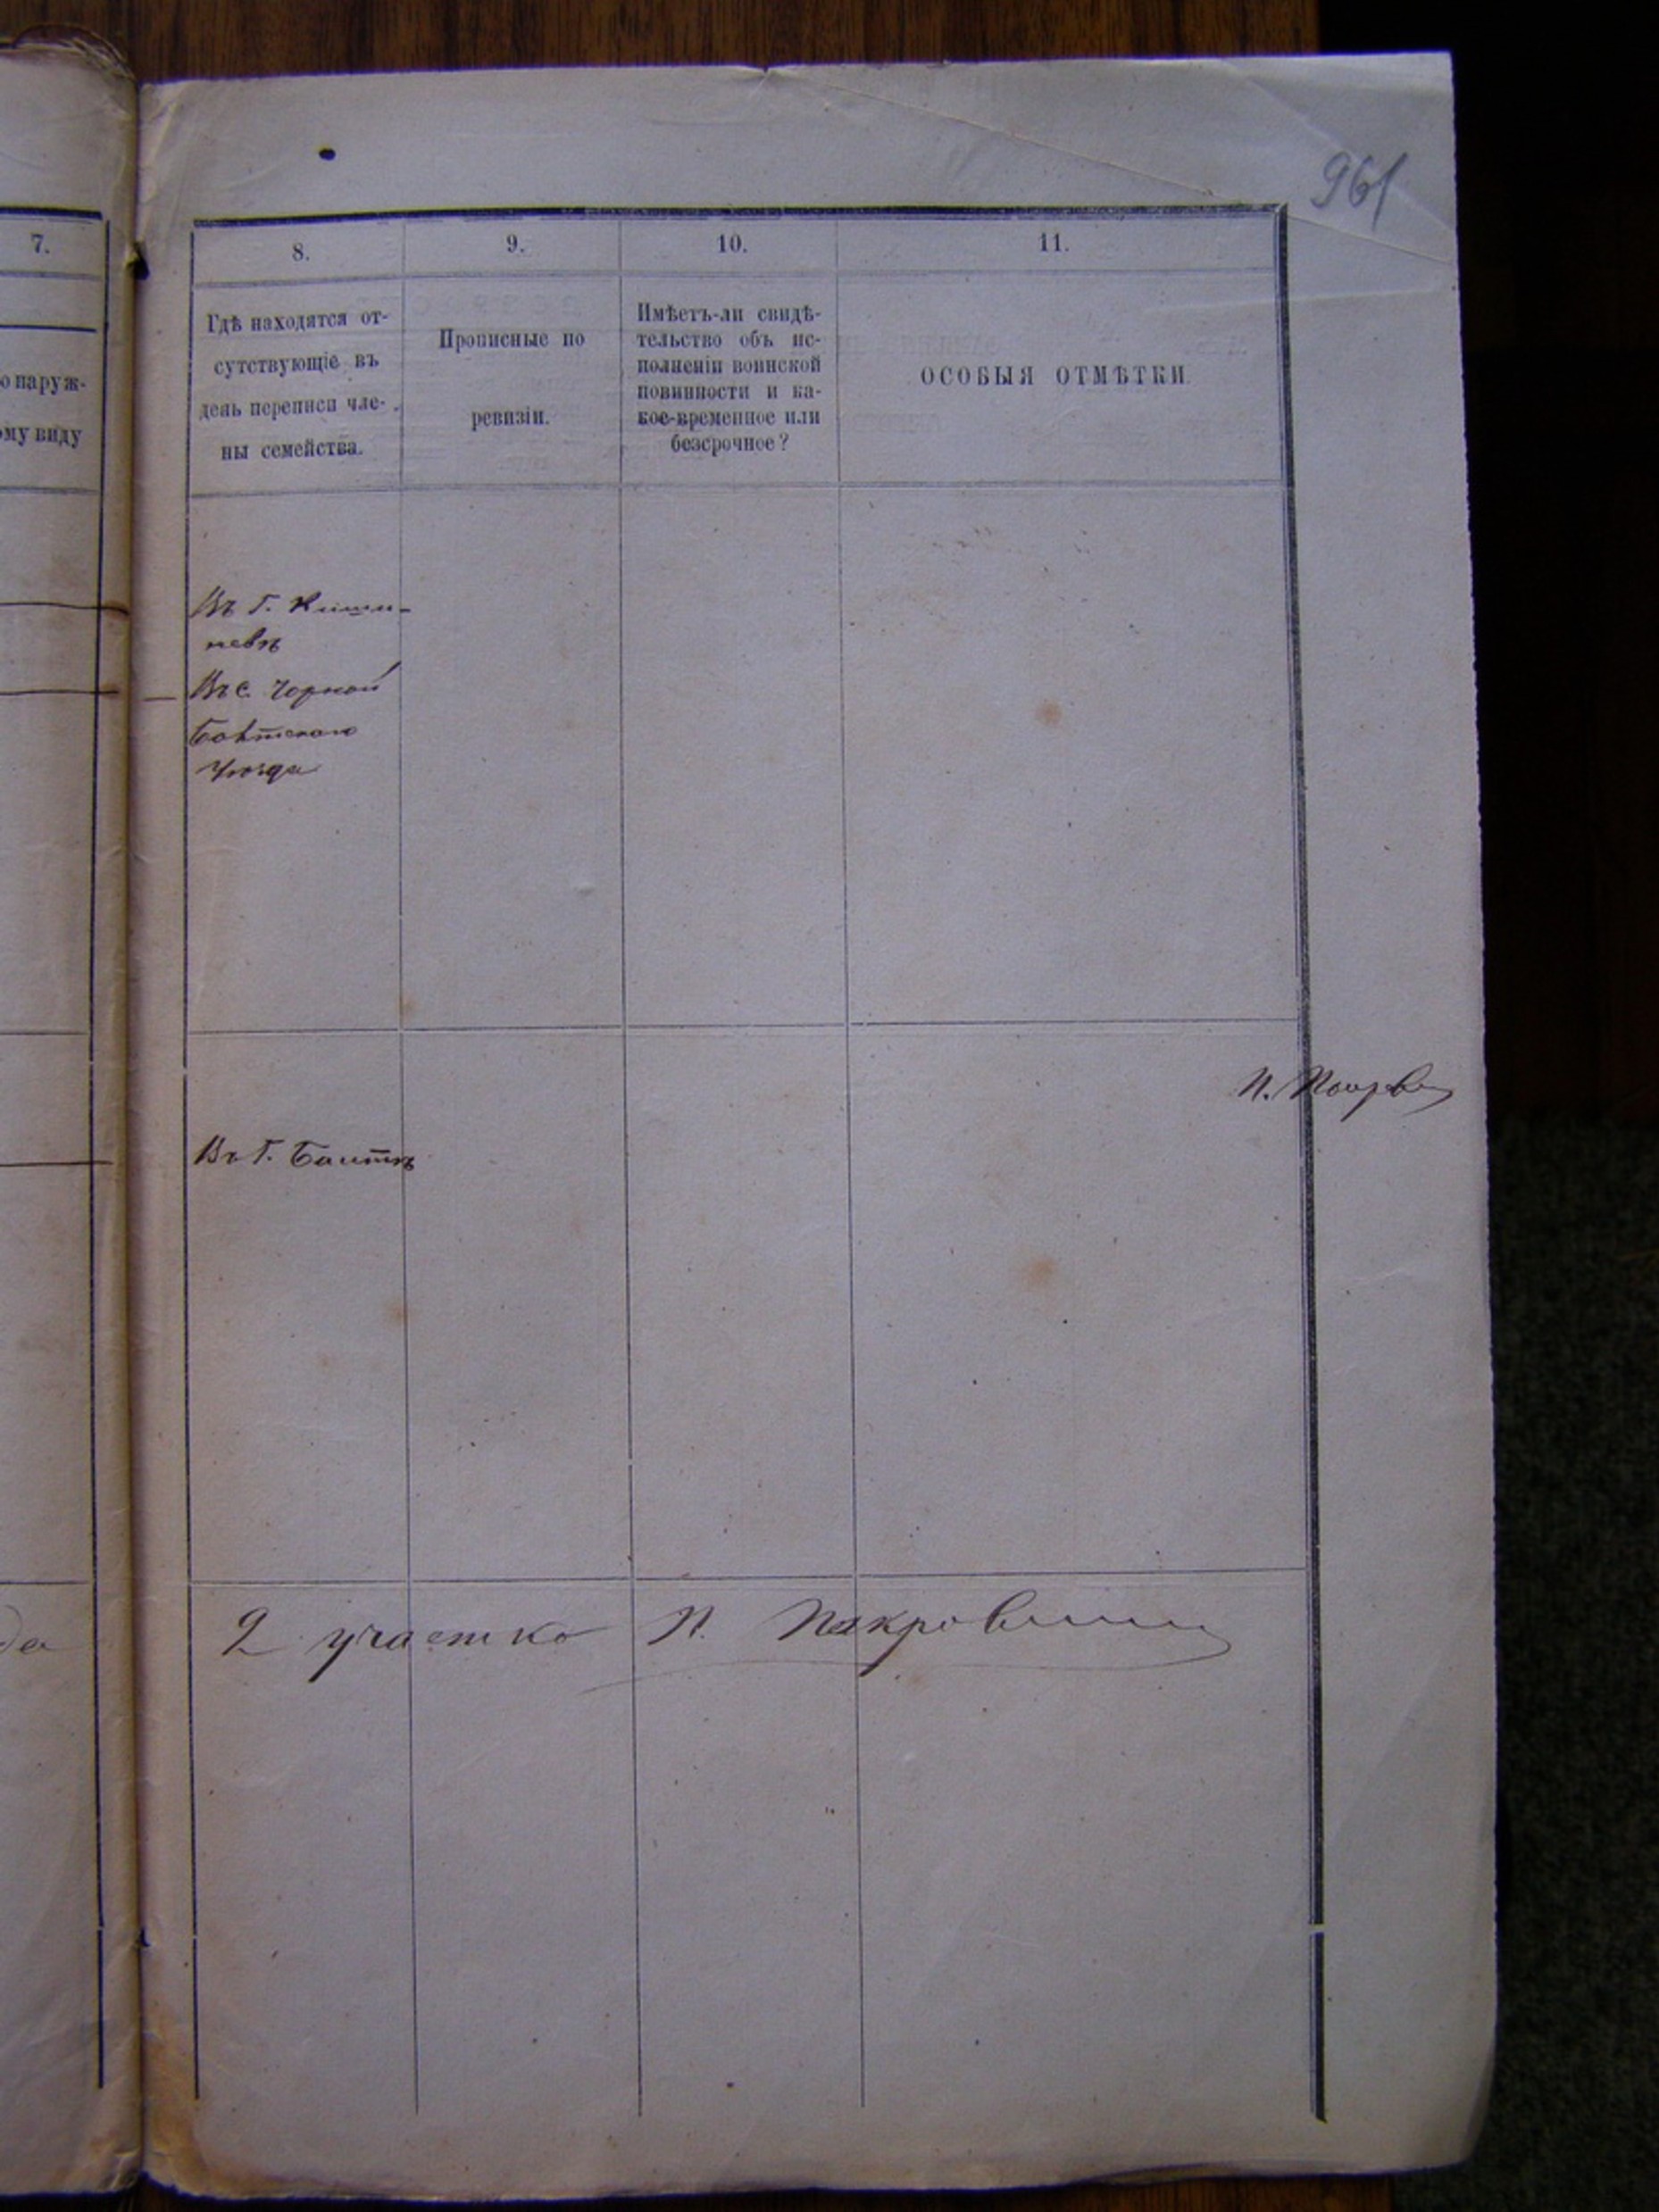 961
7.
о наруж-
ому виду
да
8.
9.
10.
11.
Гдѣ находятся от-
сутствующіе въ
день переписи чле-
ны семейства.
Прописные по
ревизіи.
Имѣетъ-ли свидѣ-
тельство объ ис-
полненіи воинской
повинности и ка-
кое-временное или
безсрочное?
ОСОБЫЯ ОТМѢТКИ.
Въ г. Киши-
невѣ
Въ с. Чорной
Балтскаго
Уѣзда
П.
Въ г. Балтѣ
2 участка П.